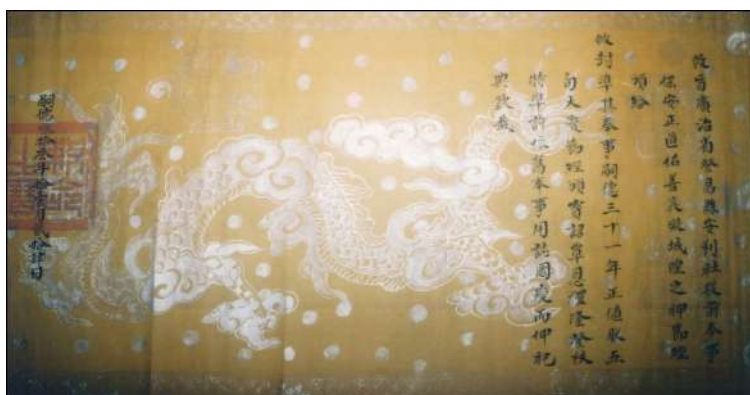 敕旨廣治省登昌縣安利社從前奉事
保安正直佑善敦凝城隍之神節經
頒給
敕封準其奉事嗣德三十一年正值朕五
旬大慶節經頒寶詔覃恩禮隆登秩
特準許依舊奉事用誌國慶而伸祀
典欽哉
嗣德叁拾叁年拾壹月貳拾肆日